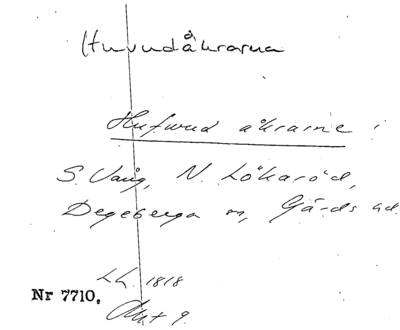 Huvudåkrarna
Hufwud åkrarne i
S. Vång, N. Lökaröd,
Degeberga sn, Gärds hd.
LL. 1818
Nr 7710.
Akt 9.